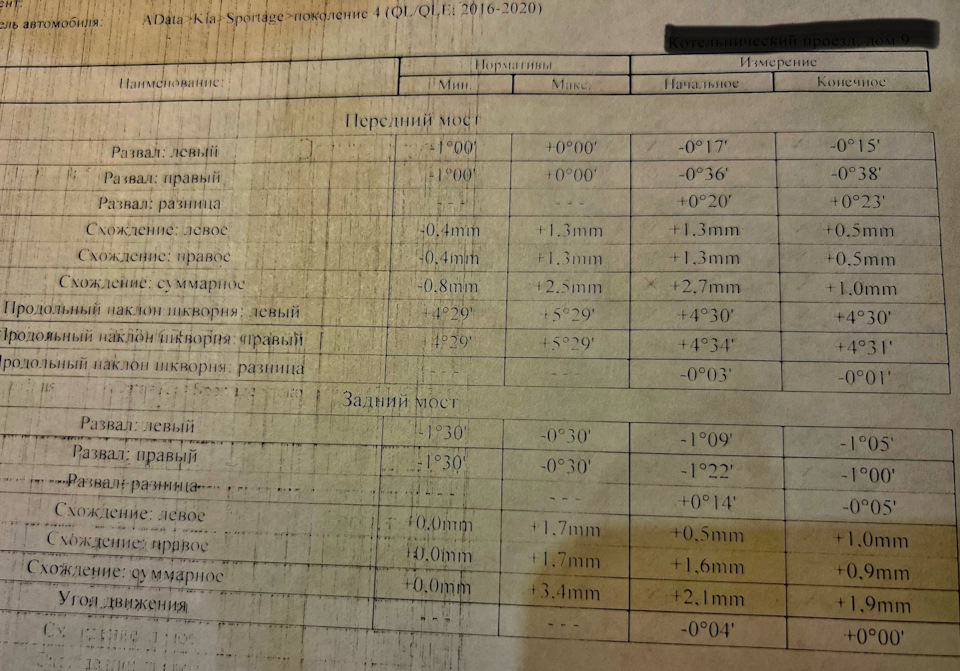 ент:
ель автомобиля: AData>Kia>Sportage>поколение 4 (QL/QLE; 2016-2020)
Котельнический проезд, дом 9
Наименование: Нормативы Измерение
Мин. Макс. Начальное Конечное
Передний мост
Развал: левый -1°00' +0°00' -0°17' -0°15'
Развал: правый -1°00' +0°00' -0°36' -0°38'
Развал: разница --- --- +0°20' +0°23'
Схождение: левое -0,4mm +1,3mm +1,3mm +0,5mm
Схождение: правое -0,4mm +1,3mm +1,3mm +0,5mm
Схождение: суммарное -0,8mm +2,5mm +2,7mm +1,0mm
Продольный наклон шкворня: левый +4°29' +5°29' +4°30' +4°30'
Продольный наклон шкворня: правый +4°29' +5°29' +4°34' +4°31'
Продольный наклон шкворня: разница --- --- -0°03' -0°01'
Задний мост
Развал: левый -1°30' -0°30' -1°09' -1°05'
Развал: правый -1°30' -0°30' -1°22' -1°00'
Развал: разница --- --- +0°14' -0°05'
Схождение: левое +0,0mm +1,7mm +0,5mm +1,0mm
Схождение: правое +0,0mm +1,7mm +1,6mm +0,9mm
Схождение: суммарное +0,0mm +3,4mm +2,1mm +1,9mm
Угол движения --- -0°04' +0°00'